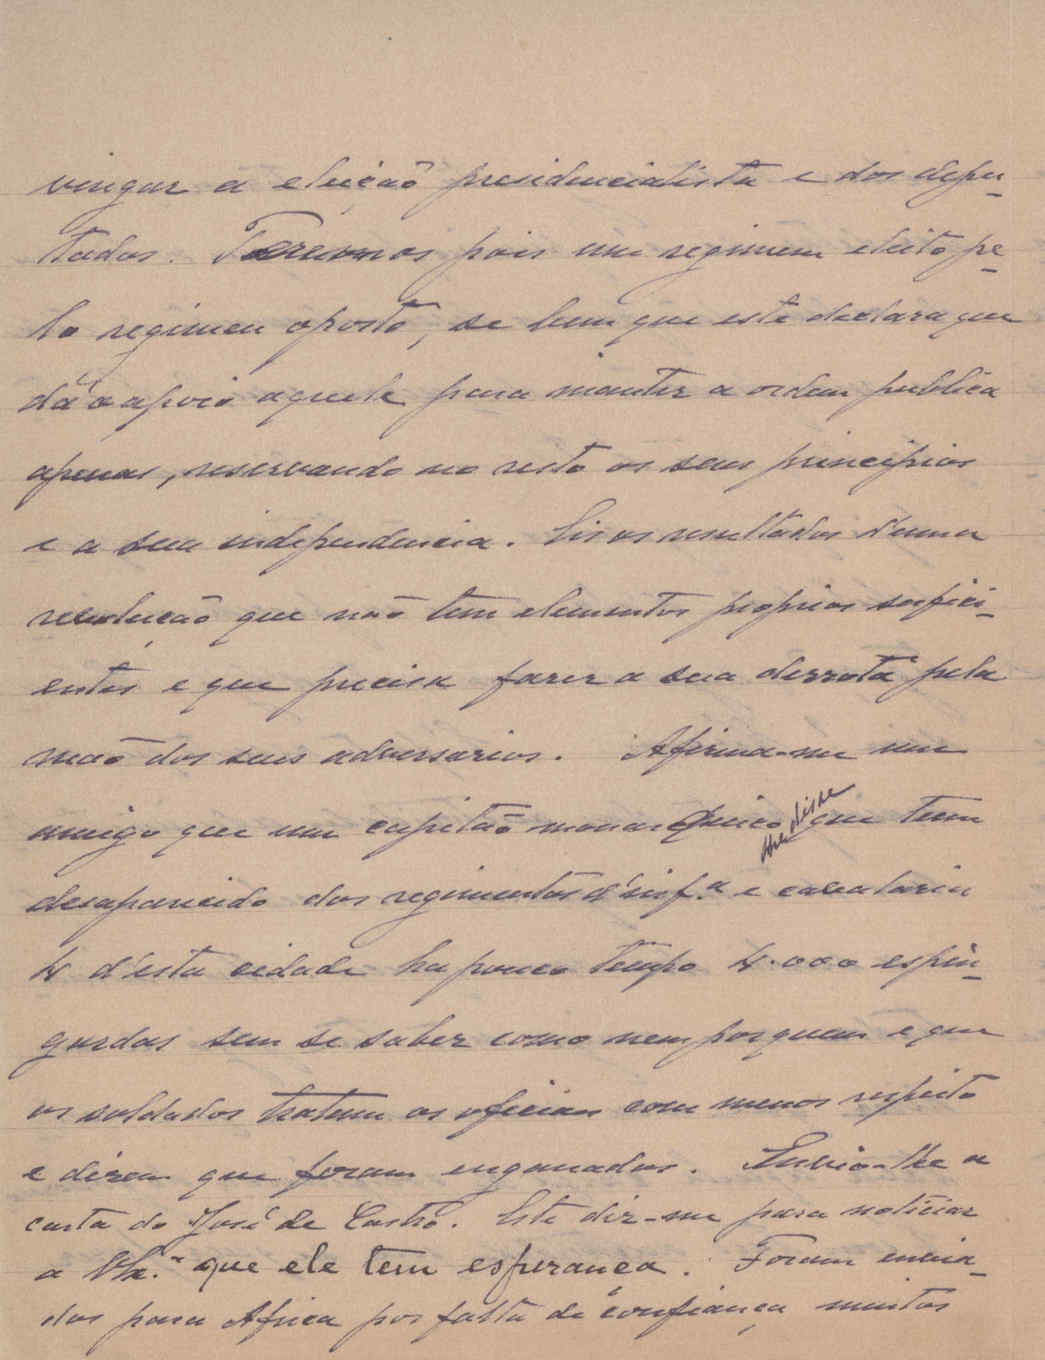 vingar a eleição presidencialista e dos depu-
tados. Teremos pois um regimen eleito pe-
lo regimen oposto, se bem que este declara que
dá o apoio aquele para manter a ordem publica
apenas, reservando no resto os seus principios
e a sua independencia. Eis os resultados d'uma
revolução que não tem elementos proprios sufici-
entes e que precisa fazer a sua derrota pela
mão dos seus adversarios. Afirma-me um
amigo que um capitão monarquico lhe disse que tem
desaparecido dos regimentos d'inf.a e cavalaria
4 d'esta cidade ha pouco tempo 4.000 espin-
gardas sem se saber como nem por quem e que
os soldados tratam os oficiais com menos respeito
e dizem que foram enganados. Envio-lhe a
carta do José de Castro. Este diz-me para noticiar
a que ele tem esperança. Foram envia-
dos para Africa por falta de confiança muitos